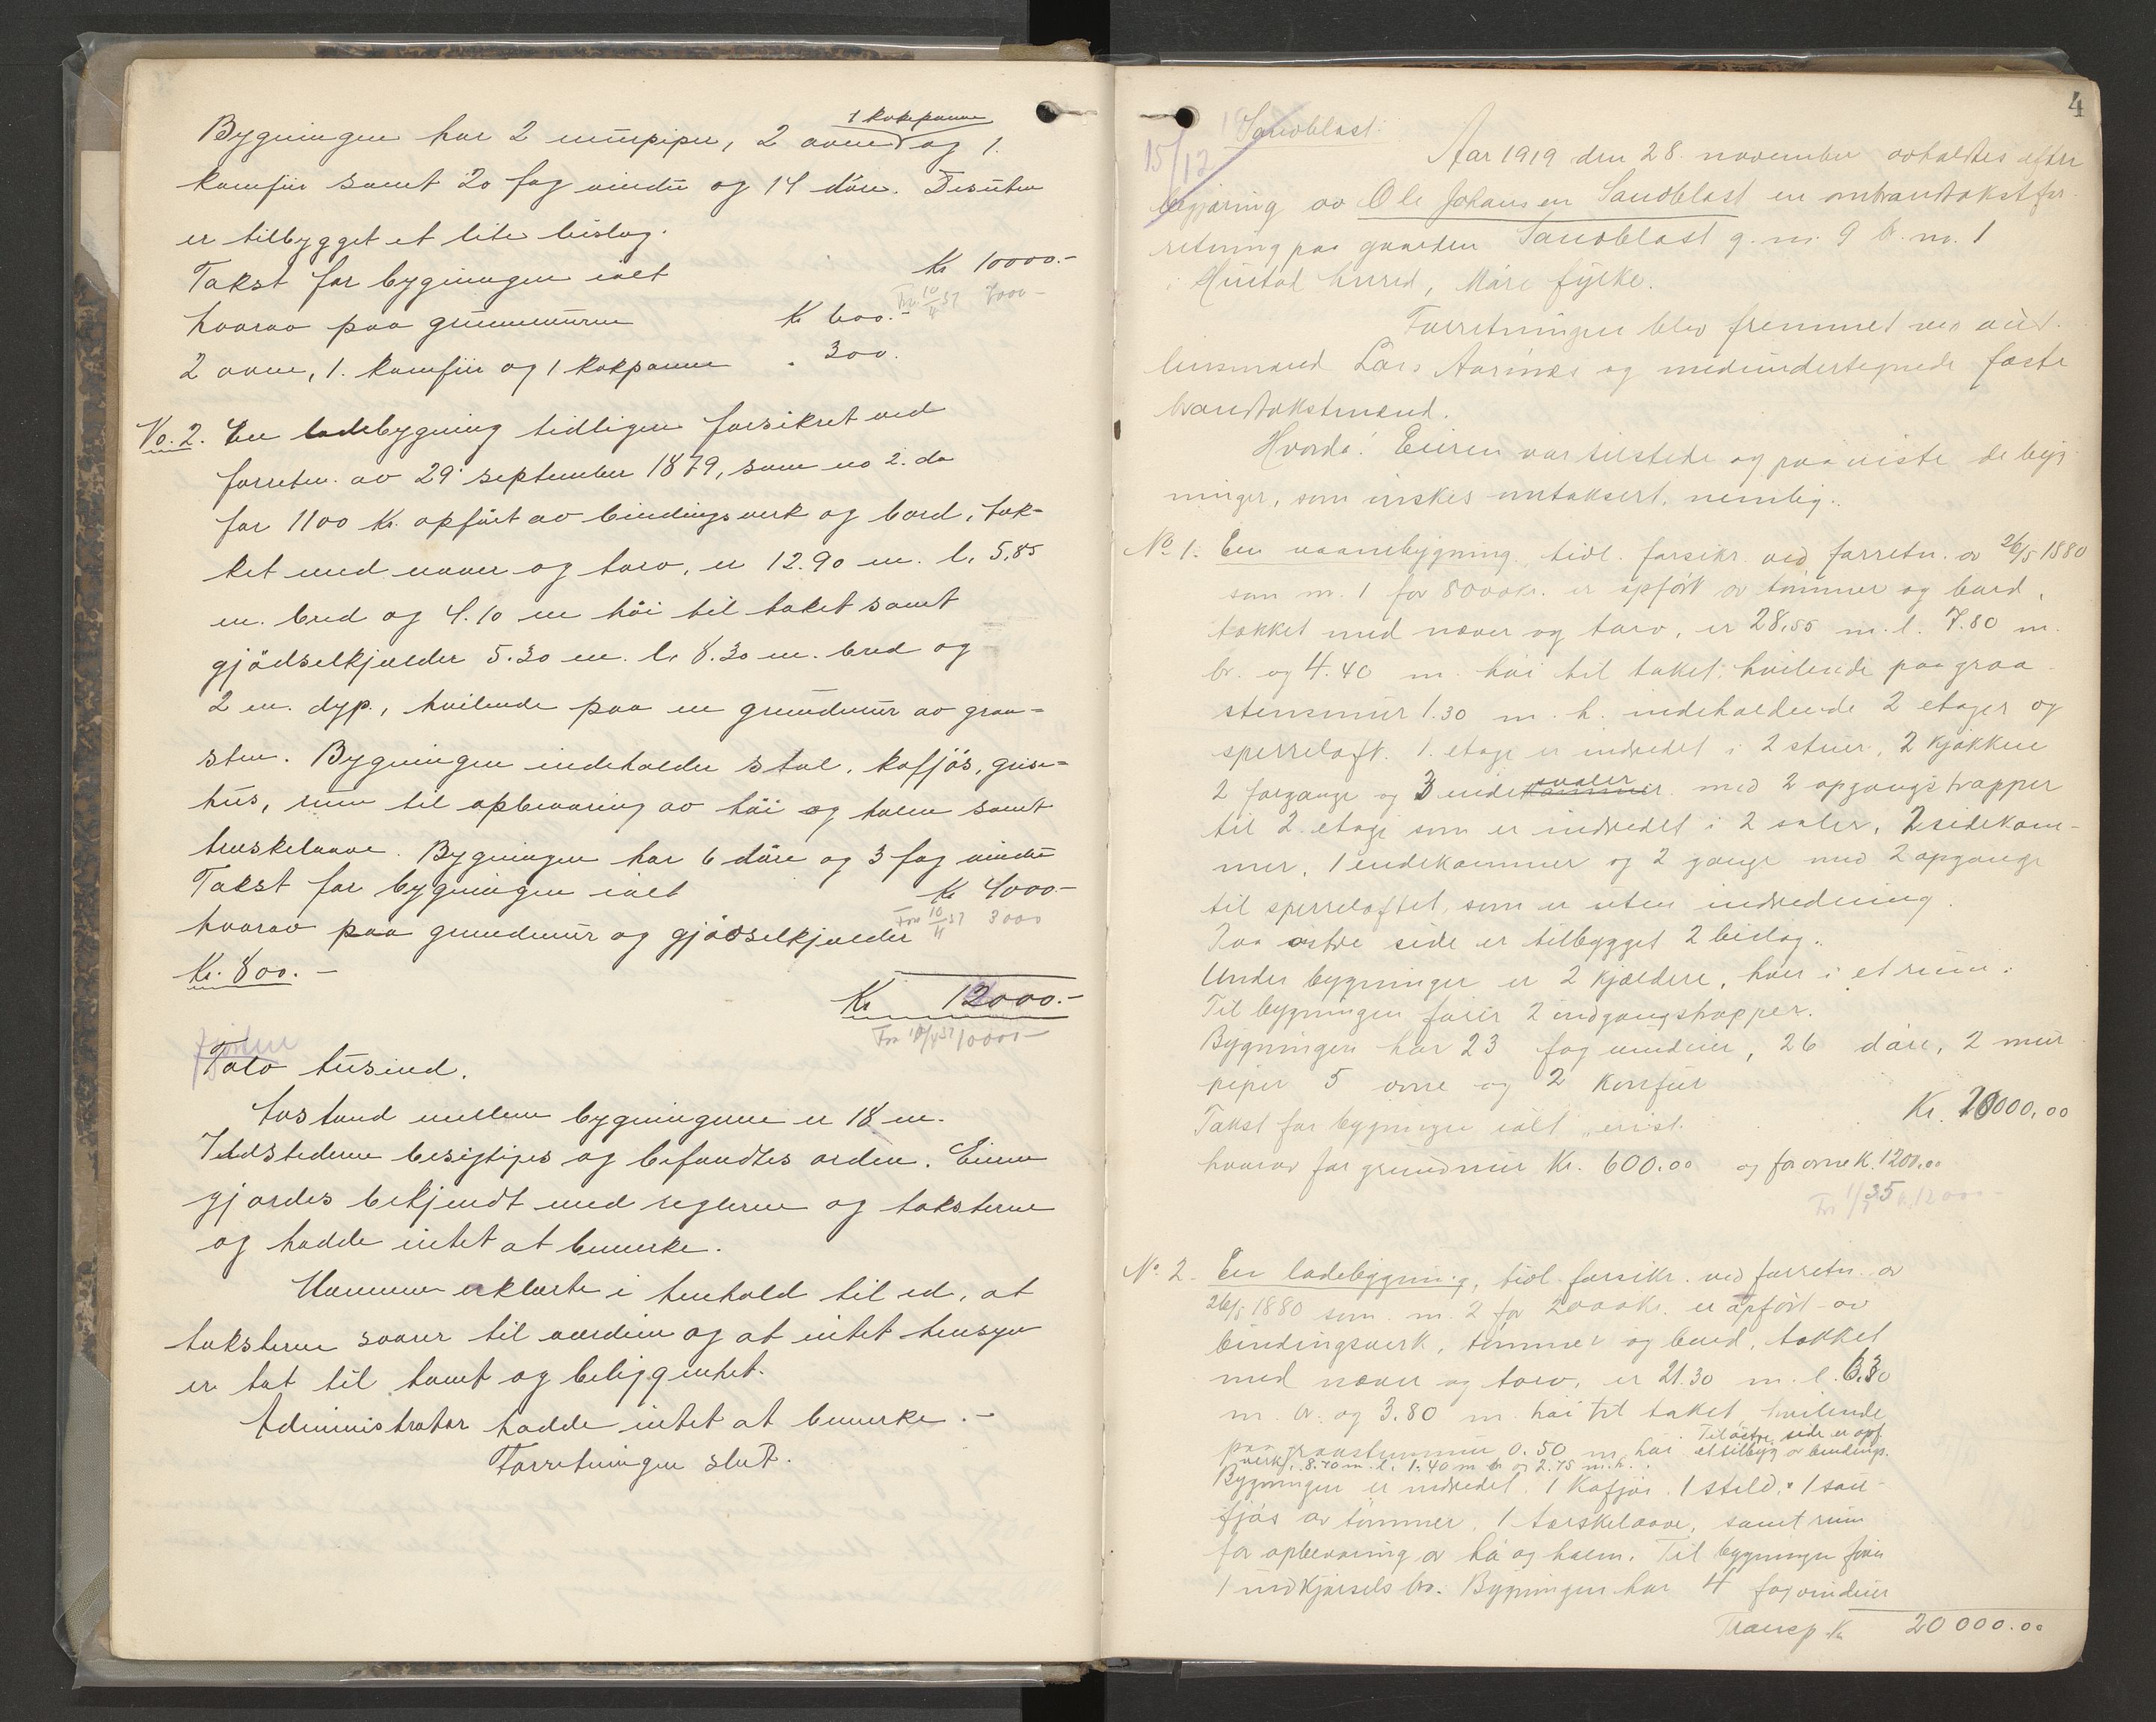 1 kokepanne
Bygningen har 2 murpiper, 2 ovne og 1.
komfür samt 20 fag vindu og 14 döre. Desuten
er tilbygget et lite bislag.
Takst for bygningen ialt Kr 10000.-
Fra 10/4 37 7000-
hvorav paa grunmuren Kr 600.-
2 ovne, 1. komfür og 1 kokpanne . 300.
No. 2. En ladebygning tidligere forsikret ved
forretn. av 29. september 1879, som no 2. da
for 1100 Kr. opfört av bindingsverk og bord, tæk-
ket med never og torv, er 12.90 m. l. 5,85
m. bred og 4.10 m höi til taket samt
gjödselkjælder 5.30 m. l. 8.30 m. bred og
2 m. dyp., hvilende paa en grundmur av graa-
sten. Bygningen indeholder stal, kofjös, grise-
hus, rum til opbevaring av höi og halm samt
treskelaave. Bygningen har 6 döre og 3 fag vindu
Takst for bygningen ialt Kr 4000-
hvorav paa grundmur og gjödselkjælder
Fra 10/4 37 3000
Kr. 800.-
Kr 12000.-
Fra 10/4 37 10000-
Fjorten
Tolv tusind.
Avstand mellem bygningerne er 18 m.
Ildstederne besigtiges og befandtes orden. Eieren
gjordes bekjendt med reglerne og taksterne
og hadde intet at bemerke.
Mænnene erklærte i henhold til ed, at
taksterne svarer til værdien og at intet hensyn
er tat til tomt og beliggenhet.
Administrator hadde intet at bemerke.-
Forretningen slut.
4
Sandblast:
15/12
Aar 1919 den 28. november avholdtes efter
begjæring av Ole Johansen Sandblast en ombrandtakstfor-
retning paa gaarden Sandblast g. nr. 9 b. nr. 1
i Hustad herred, Möre fylke.
Forretningen blev fremmet ved aut.
lensmand Lars Aarnæs og medundertegnede faste
brandtakstmænd.
Hvorda! Eieren var tilstede og paaviste de byg-
ninger, som önskes omtaksert, nemlig:
No 1. En vaanebygning tidl. forsikr. ved forretn. av 26/5 1880
som nr. 1 for 8000 kr. er opfört av tömmer og bord,
tækket med never og torv, er 28,55 m. l. 7.80 m.
br. og 4.40 m. höi til taket: hvilende paa graa-
stensmur 1.30 m. h. indeholdende 2 etager og
sperreloft. 1. etage er indredet i 2 stuer, 2 kjökken
svaler
2 forgange og 3 endekammer med 2 opgangstrapper
til 2. etage som er indredet i 2 saler, 2 sidekam-
mer, 1 endekammer og 2 gange med 2 opgange
til sperreloftet, som er uten indredning.
Paa östre side er tilbygget 2 bislag.
Under bygningen er 2 kjældere, hver i et rum.
Til bygningen förer 2 indgangstrapper.
Bygningen har 23 fag vinduer, 26 döre, 2 mur-
piper 5 ovne og 2 komfür
Takst for bygningen ialt Kr. 20000,00
hvorav for grundmur Kr. 600.00 og for ovne K. 1200,00
Fra 1/7 35 k. 12000-
No. 2. En ladebygning, tidl. forsikr. ved forretn. av
26/5 1880 som nr. 2 for 2000 kr. er opfört av
bindingsverk, tömmer og bord, tækket
med never og torv, er 21.30 m. l. 6.30
m. br. og 3.80 m höi til taket hvilende
Til östre side er opf.
paa graastensmur 0.50 m. höi et tilbyg av bindings-
verk, 8.70 m. l. 1.40 m br og 2.75 m. h.
Bygningen er indredet 1 kofjös 1 stald, 1 sau-
fjös av tömmer, 1 tærskelaave, samt rum
for opbevaring av hö og halm. Til bygningen förer
1 indkjörsels bro. Bygningen har 4 fag vinduer
Transp. Kr 20 000.00